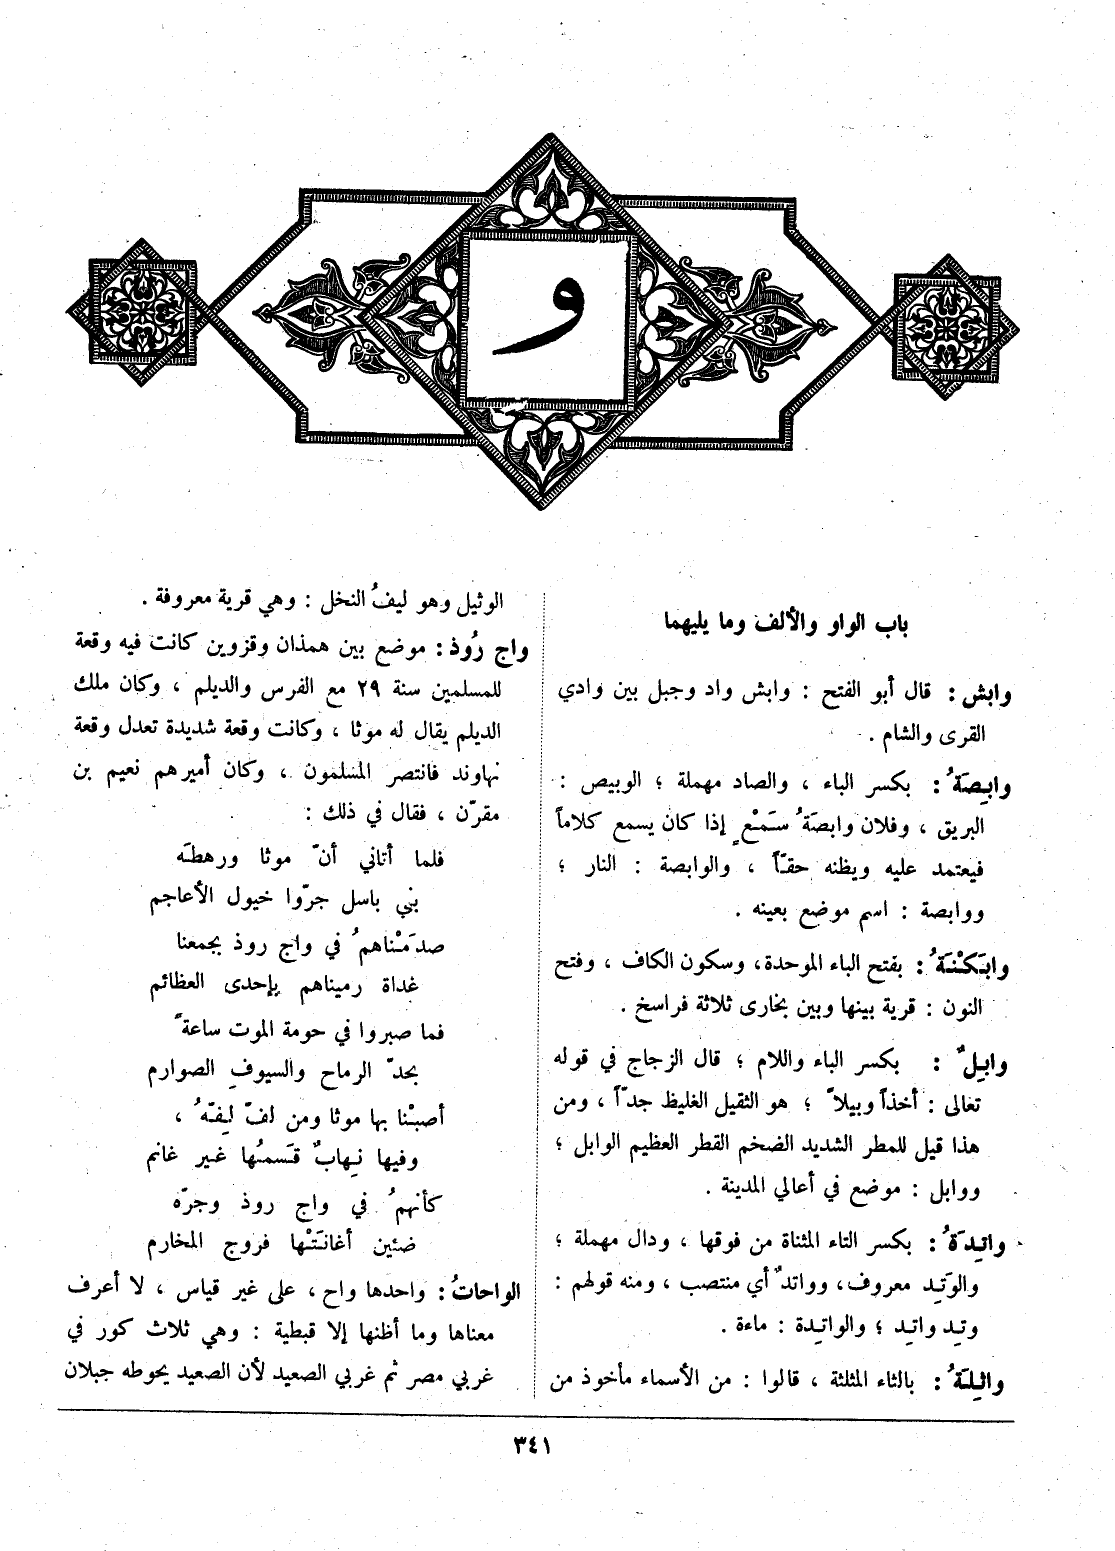 و
باب الواو والألف وما يليهما
وابش : قال أبو الفتح : وابش واد وجبل بين وادي
القرى والشام .
وابِصَةُ : بكسر الباء ، والصاد مهملة ؛ الوبيص :
البريق ، وفلان وابصَةُ سَمْعٍ إذا كان يسمع كلاماً
فيعتمد عليه ويظنه حقّاً ، والوابصة : النار ؛
ووابصة : اسم موضع بعينه .
وابَكْنَةُ : بفتح الباء الموحدة ، وسكون الكاف ، وفتح
النون : قرية بينها وبين بخارى ثلاثة فراسخ .
وابِلٌ : بكسر الباء واللام ؛ قال الزجاج في قوله
تعالى : أخذاً وبيلاً ؛ هو الثقيل الغليظ جدّاً ، ومن
هذا قيل للمطر الشديد الضخم القطر العظيم الوابل ؛
ووابل : موضع في أعالي المدينة .
واتِدَةُ : بكسر التاء المثناة من فوقها ، ودال مهملة ؛
والوَتِد معروف ، وواتدٌ أي منتصب ، ومنه قولهم :
وتِد واتِد ؛ والواتِدة : ماءة .
واثِلَةُ : بالثاء المثلثة ، قالوا : من الأسماء مأخوذ من
الوثيل وهو ليفُ النخل : وهي قرية معروفة .
واج رُوذ : موضع بين همذان وقزوين كانت فيه وقعة
للمسلمين سنة ٢٩ مع الفرس والديلم ، وكان ملك
الديلم يقال له موثا ، وكانت وقعة شديدة تعدل وقعة
نهاوند فانتصر المسلمون ، وكان أميرهم نعيم بن
مقرّن ، فقال في ذلك :
فلما أتاني أنّ موثا ورهطَه
بني باسل جرّوا خيول الأعاجم
صدَمْناهمُ في واج روذ بجمعنا
غداة رميناهم بإحدى العظائم
فما صبروا في حومة الموت ساعةً
بحدّ الرماح والسيوفِ الصوارم
أصبْنا بها موثا ومن لفّ لِفّهُ ،
وفيها نِهابٌ قَسمُها غير غانم
كأنهمُ في واج روذ وجرّه
ضئين أغانَتْها فروج المخارم
الواحاتُ : واحدها واح ، على غير قياس ، لا أعرف
معناها وما أظنها إلا قبطية : وهي ثلاث كور في
غربي مصر ثم غربي الصعيد لأن الصعيد يحوطه جبلان
٣٤١